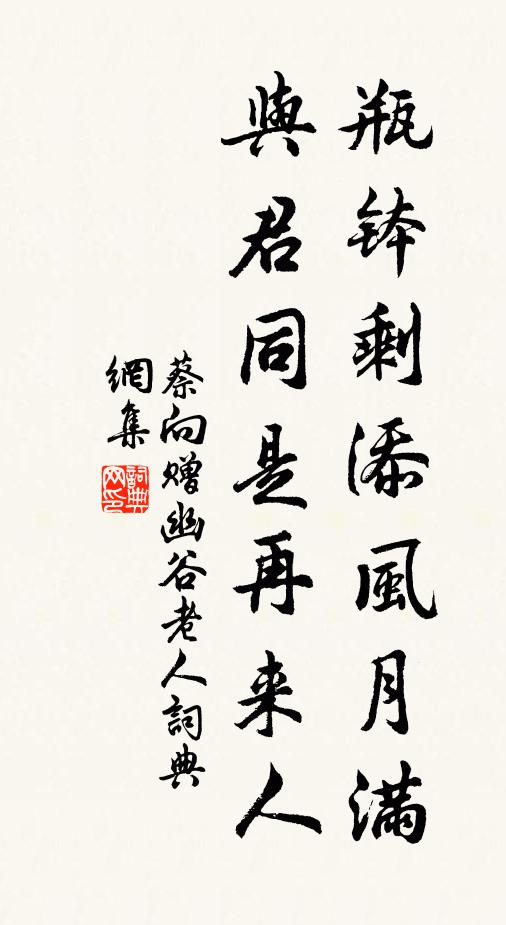 瓶鉢剩添風月滿
與君同是再来人
蔡向赠幽谷老人詞典
網集
詞典
网印